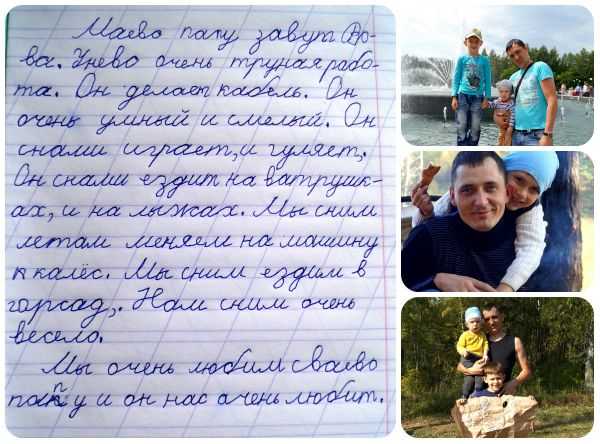 Маево папу завут Во-
ва. Унево очень трунаярабо-
та. Он делает кабель. Он
очень умный и смелый. Он
снами играет, и гуляет,
Он снами ездит на ватрушк-
ах, и на лыжах. Мы сним
летом меняем на машину
к калёс. Мы сним ездим в
горсад,. Нам сним очень
весело.
Мы очень любим сваево
папу и он нас очень любит.